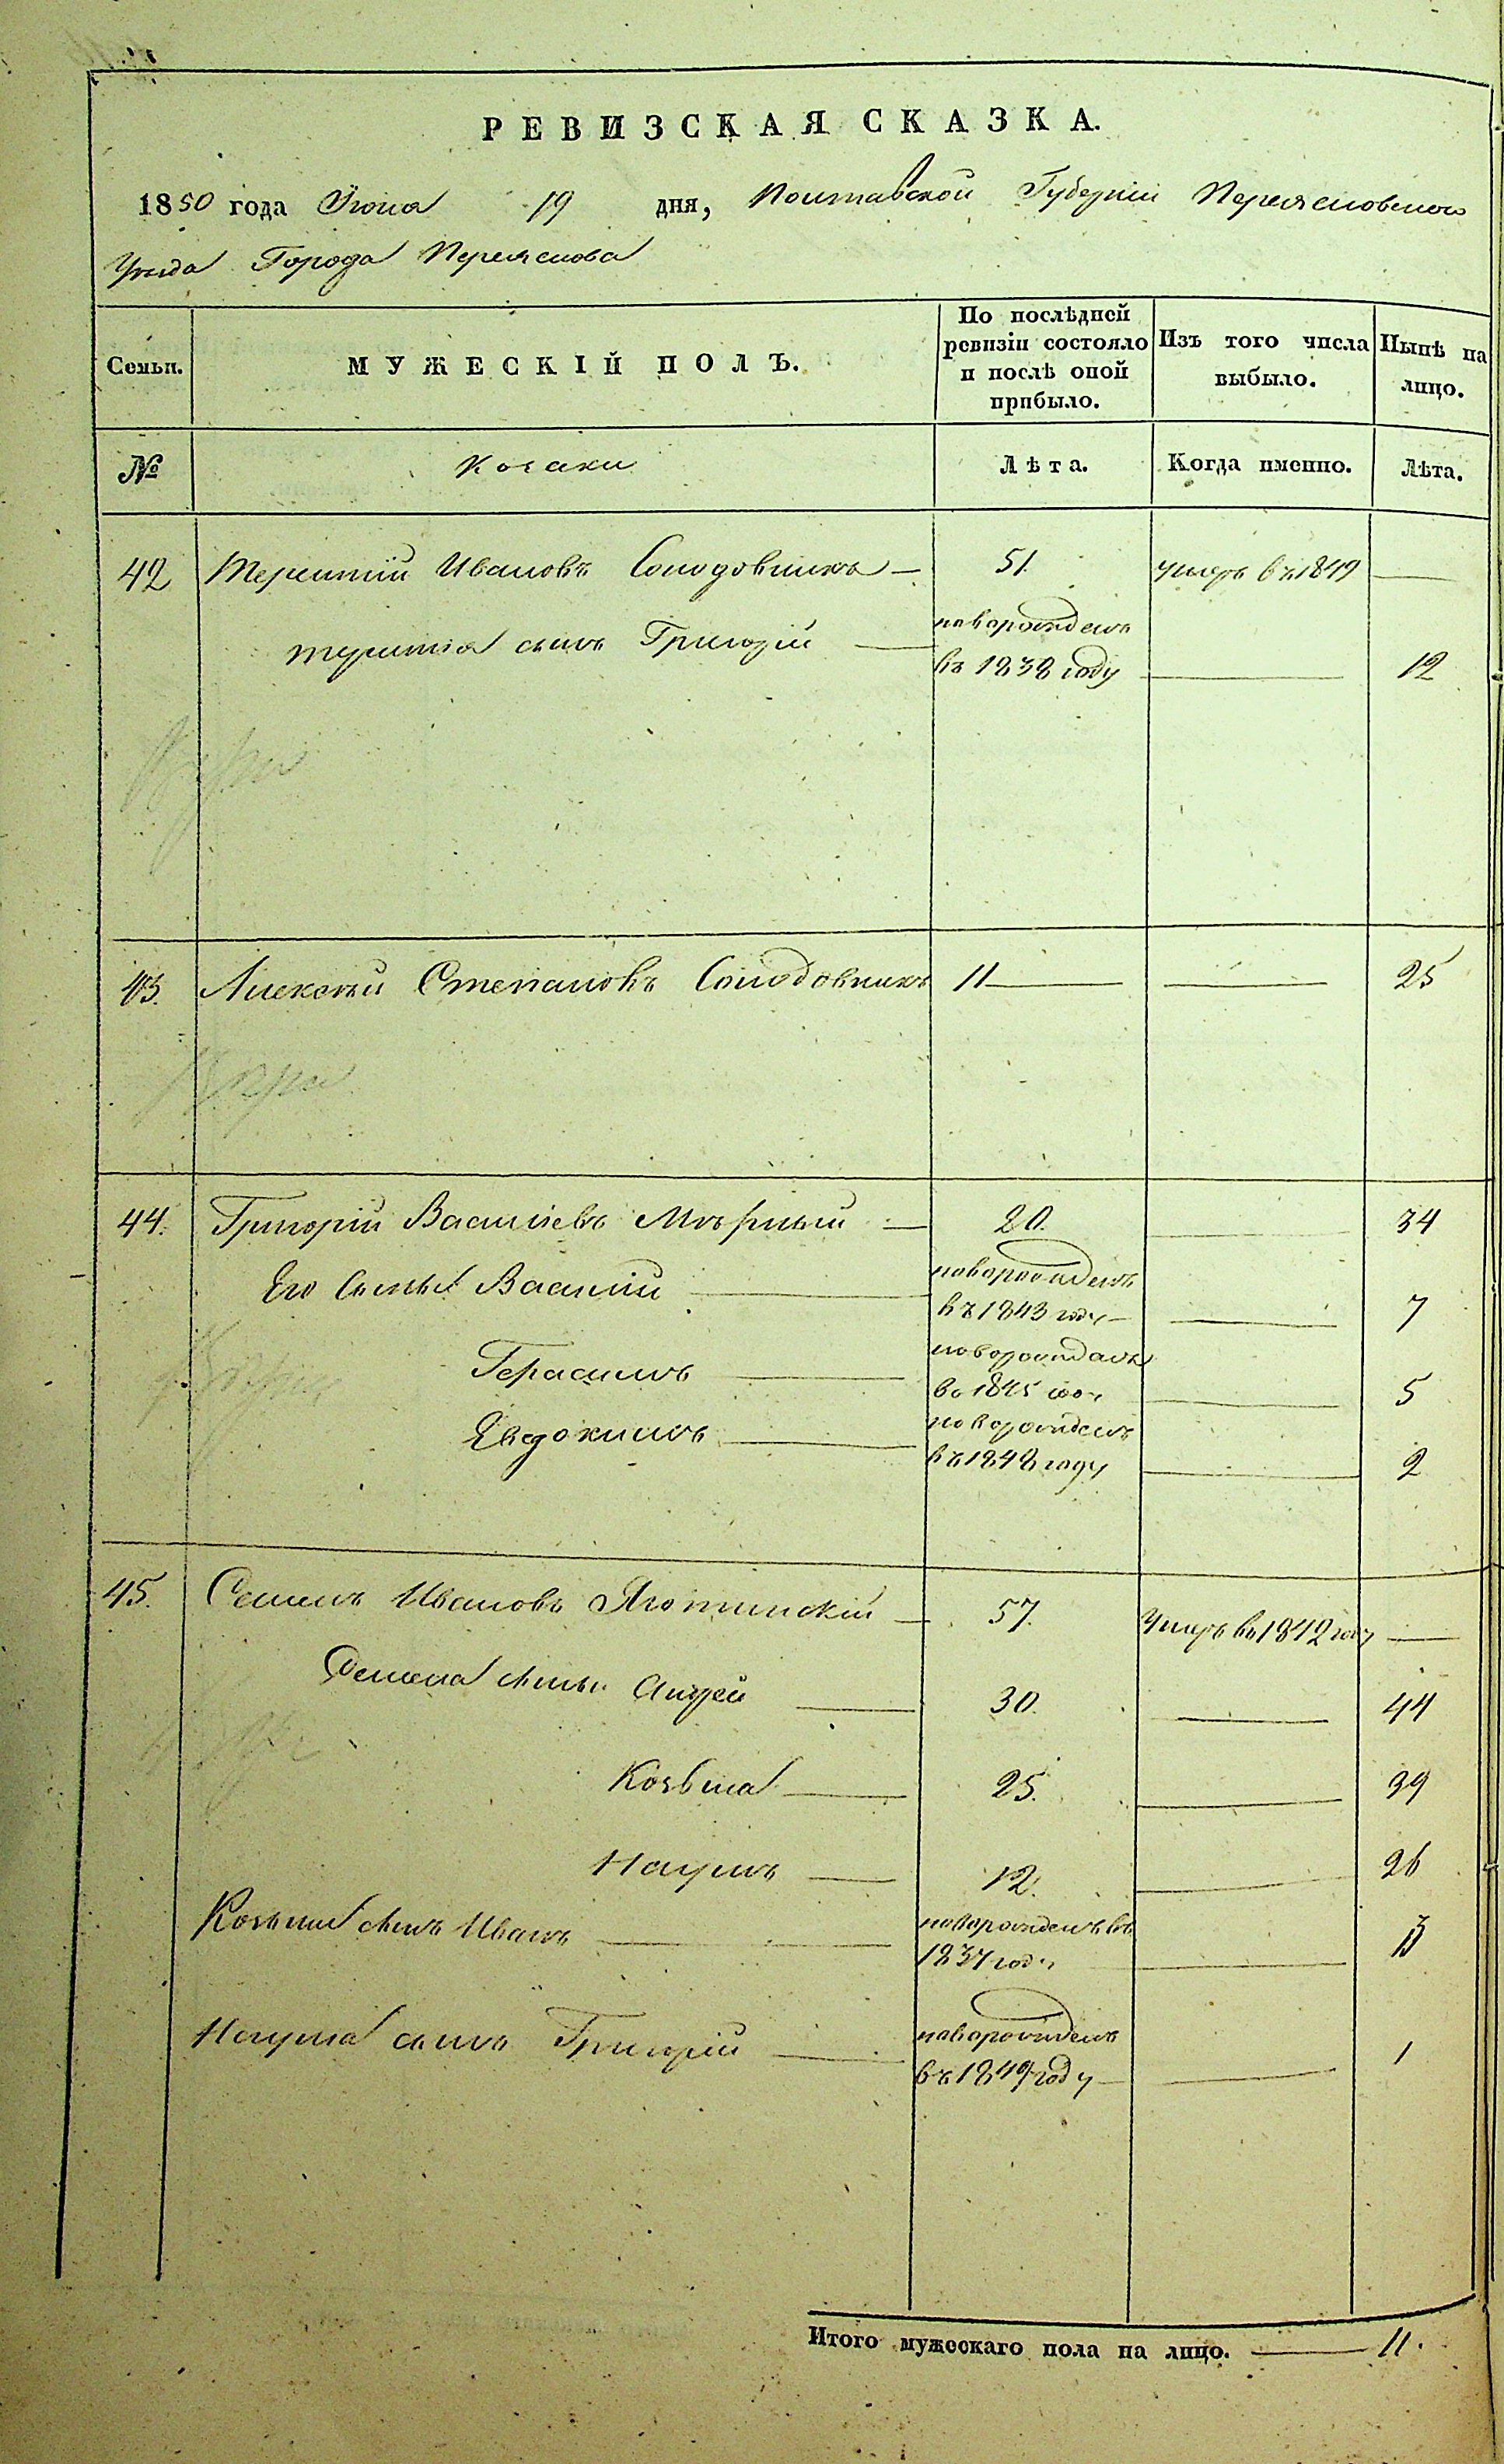 РЕВИЗСКАЯ СКАЗКА.
1850 года Июня 19 дня, Полтавской Губерніи Переясловского
Уезда Города Переяслова
Семьи.
МУЖЕСКІЙ ПОЛЪ.
По послѣдней ревизіи состояло и послѣ оной прибыло.
Изъ того числа выбыло.
Нынѣ на лицо.
№ Козаки Лѣта. Когда именно. Лѣта.
42 Терентій Ивановъ Солодовникъ — 51. умеръ въ 1849 —
Терентія сынъ Григорій — новорожденъ
въ 1838 году — 12
43. Алексѣй Степановъ Солодовникъ 11 — — 25
44. Григорій Васильевъ Мѣрный — 20. — 34
Его сыны Василий — новорожденъ
въ 1843 году — — 7
Герасимъ — новорожденъ
въ 1845 году — 5
Евдокимъ — новорожденъ
въ 1848 году — 2
45. Семенъ Ивановъ Яготинскій — 57. Умеръ въ 1842 году —
Семена сыны Андрей — 30. — 44
Козьма — 25. — 39
Наумъ — 12. — 26
Козьмы сынъ Иванъ — новорожденъ въ
1837 году — 13
Наума сынъ Григорій — новорожденъ
въ 1849 году — — 1
Итого мужескаго пола на лицо. — 11.